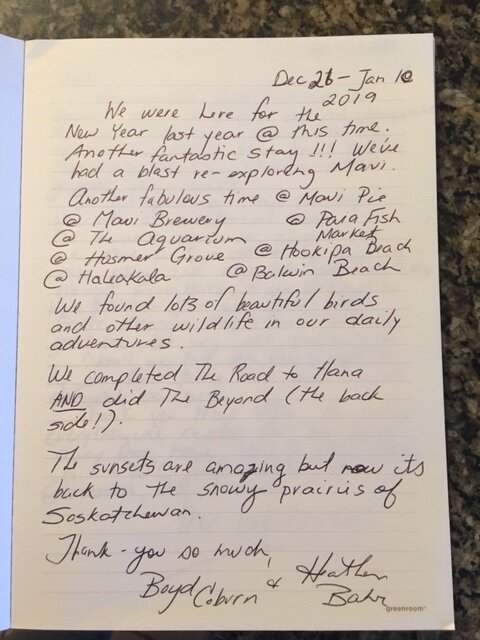 Dec 26 - Jan 10
2019
We were here for the
New Year last year @ this time.
Another fantastic stay!!! We've
had a blast re-exploring Maui.
Another fabulous time @ Maui Pie
@ Maui Brewery @ Paia Fish
Market
@ The Aquarium
@ Hosmer Grove @ Hookipa Beach
@ Haleakala @ Balwin Beach
We found lots of beautiful birds
and other wildlife in our daily
adventures.
We completed The Road to Hana
AND did The Beyond (the back
side!).
The sunsets are amazing but now its
back to the snowy prairies of
Saskatchewan.
Thank-you so much,
Boyd Coburn & Heather
Bahr
greenroom